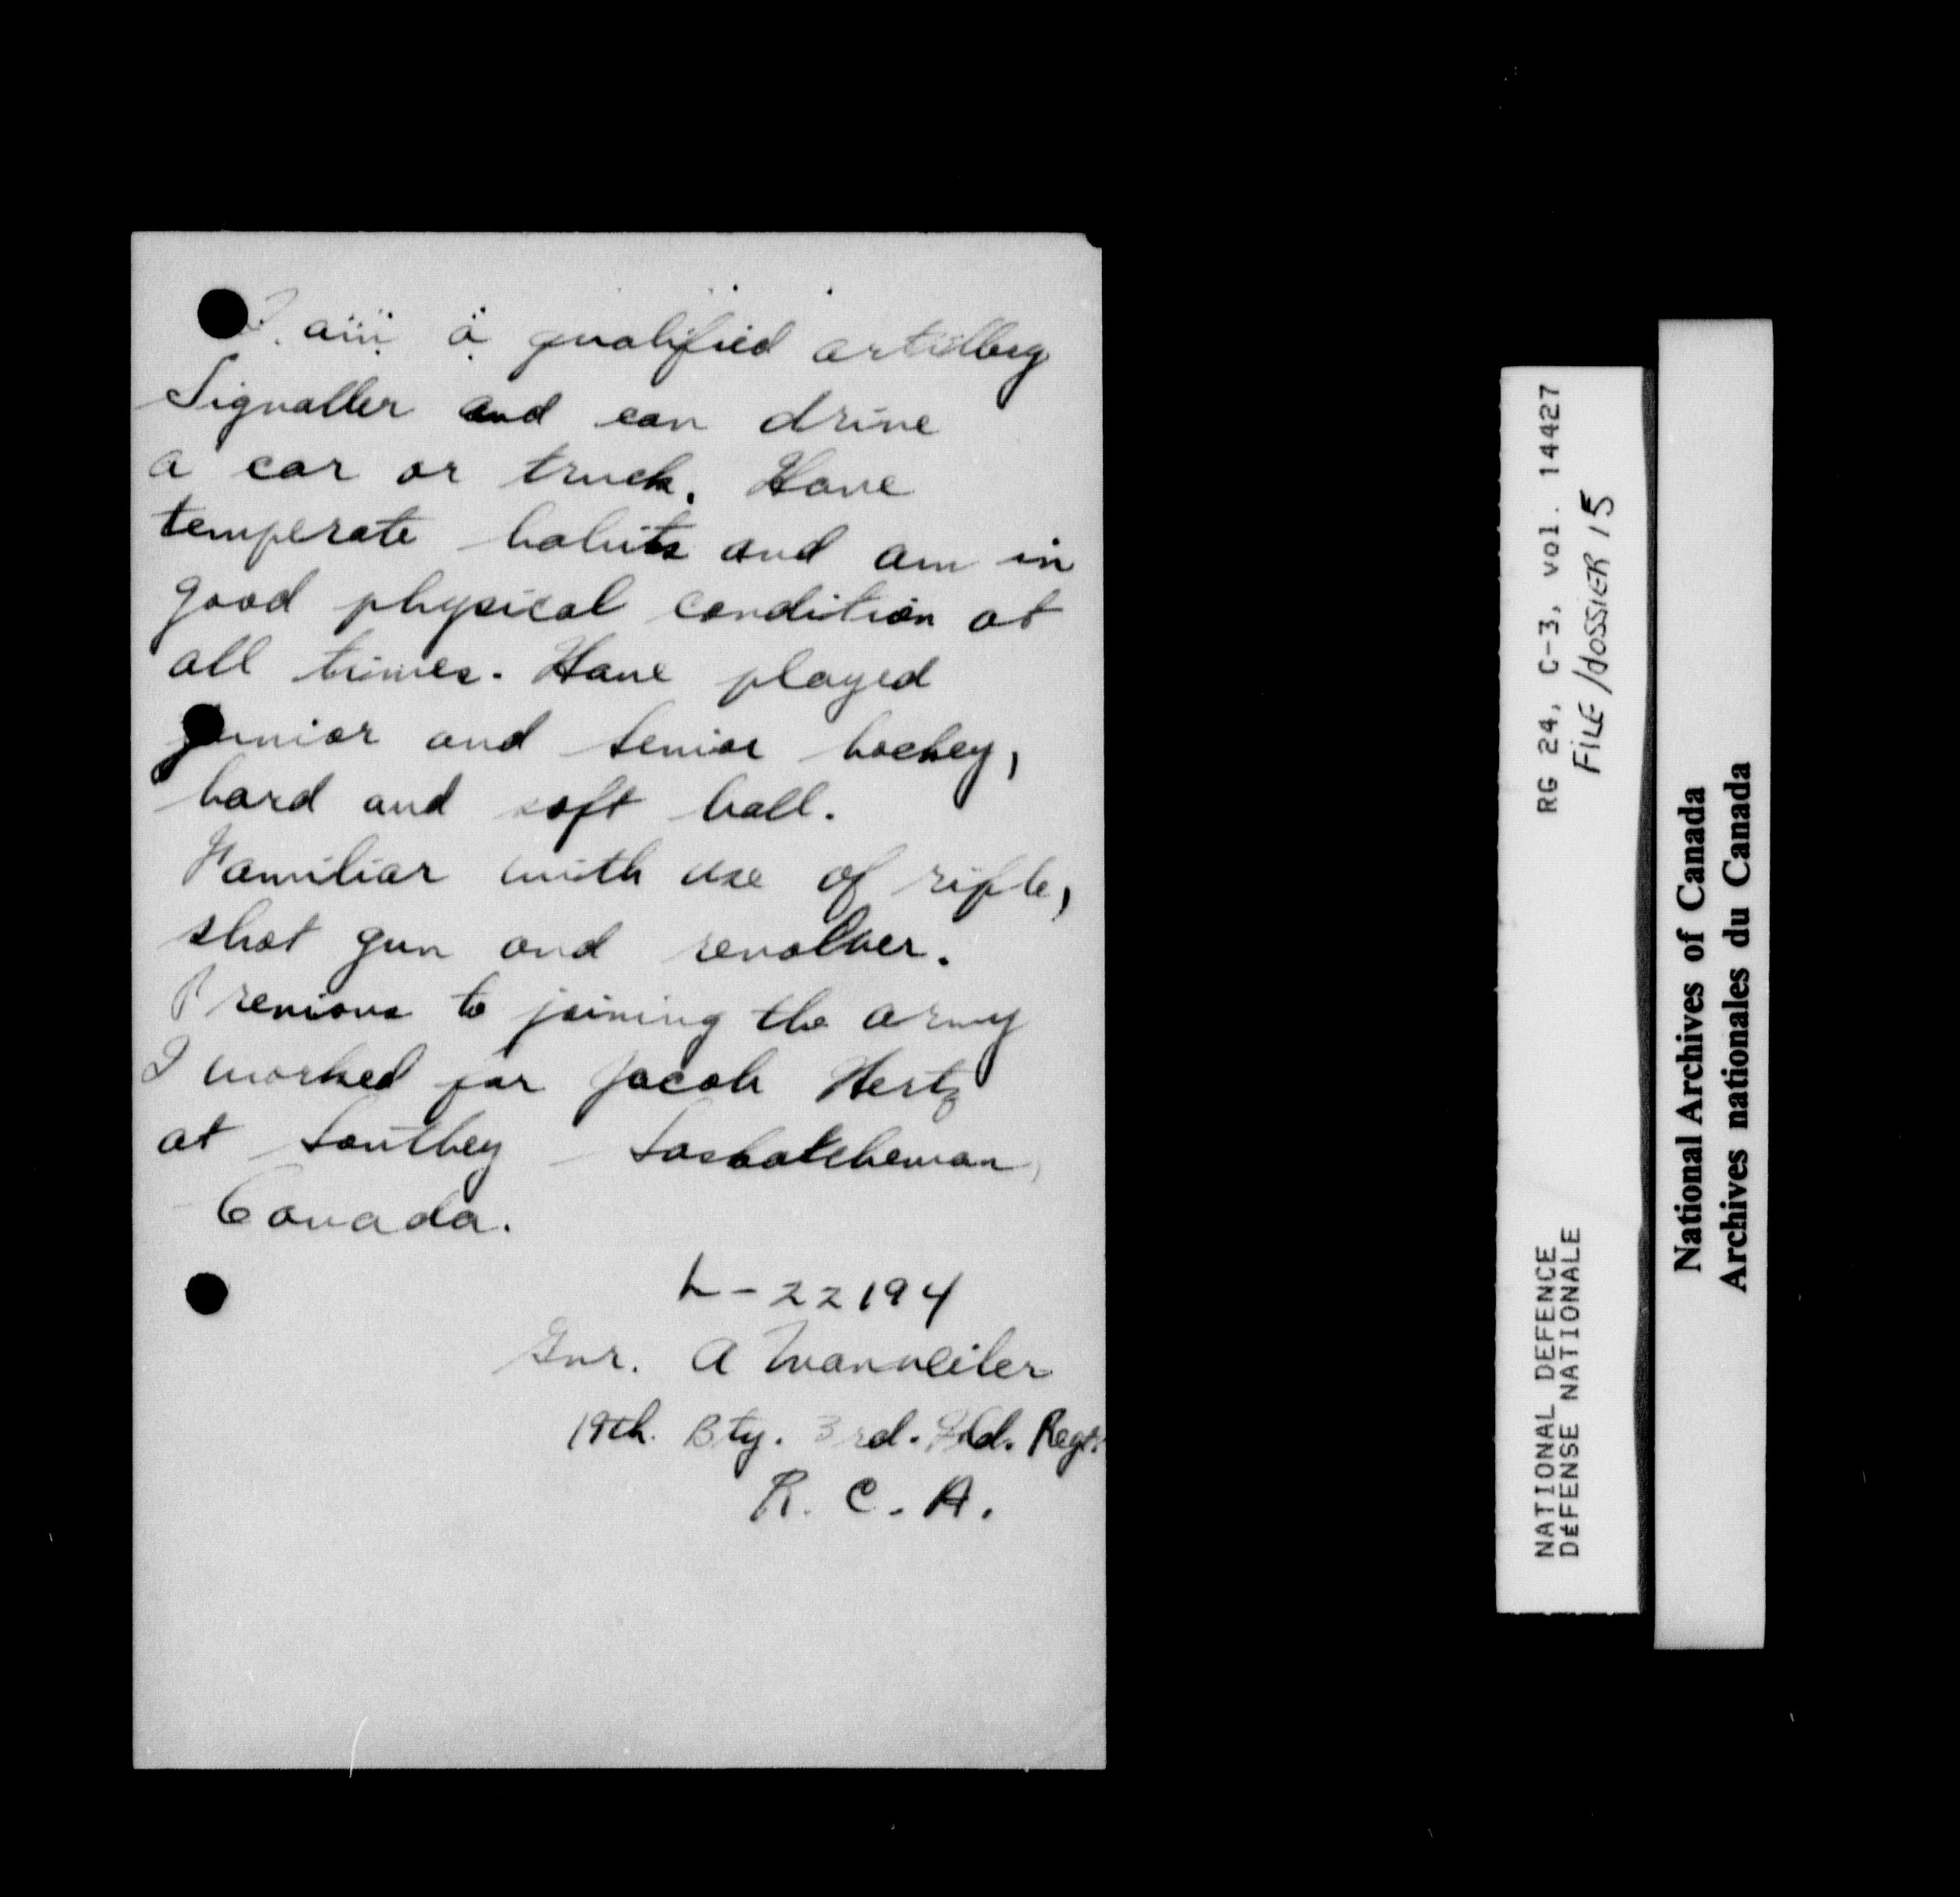 I am a qualified artillery
Signaller and can drive
a car or truck. Have
temperate habits and am in
good physical condition at
all times. Have played
junior and senior hockey,
hard and soft ball.
Familiar with use of rifle,
shot gun and revolver.
Previous to joining the army
I worked for Jacob Hertz
at Southey Saskatchewan,
Canada.
L-22194
Gnr. A Wanneiler
19th. Bty. 3rd. Fld. Regt.
R. C. A.
RG 24, C-3, vol. 14427
FILE/dOSSIER 15
NATIONAL DEFENCE
DéFENSE NATIONALE
National Archives of Canada
Archives nationales du Canada